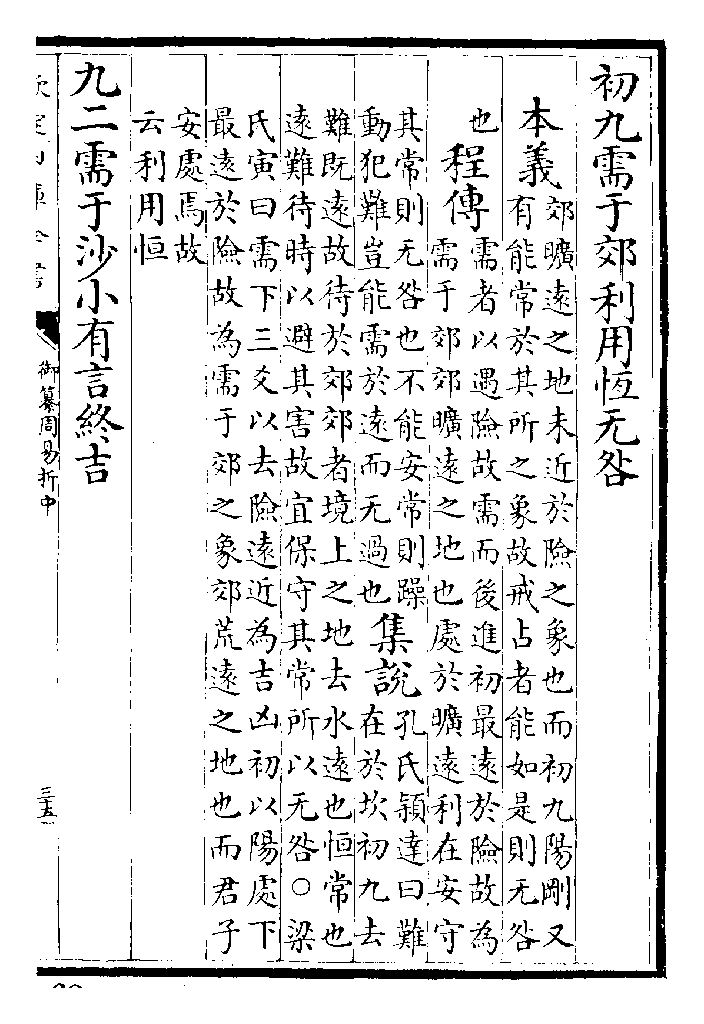 初九需于郊利用恆无咎
本義郊曠遠之地未近於險之象也而初九陽剛又
有能常於其所之象故戒占者能如是則无咎
也程傳需者以遇險故需而後進初最遠於險故為
需于郊郊曠遠之地也處於曠遠利在安守
其常則无咎也不能安常則躁
動犯難豈能需於遠而无過也
集說孔氏穎達曰難
在於坎初九去
難既遠故待於郊郊者境上之地去水遠也恒常也
遠難待時以避其害故宜保守其常所以无咎○梁
氏寅曰需下三爻以去險遠近為吉凶初以陽處下
最遠於險故為需于郊之象郊荒遠之地也而君子
安處焉故
云利用恒
九二需于沙小有言終吉
御纂周易折中
三五